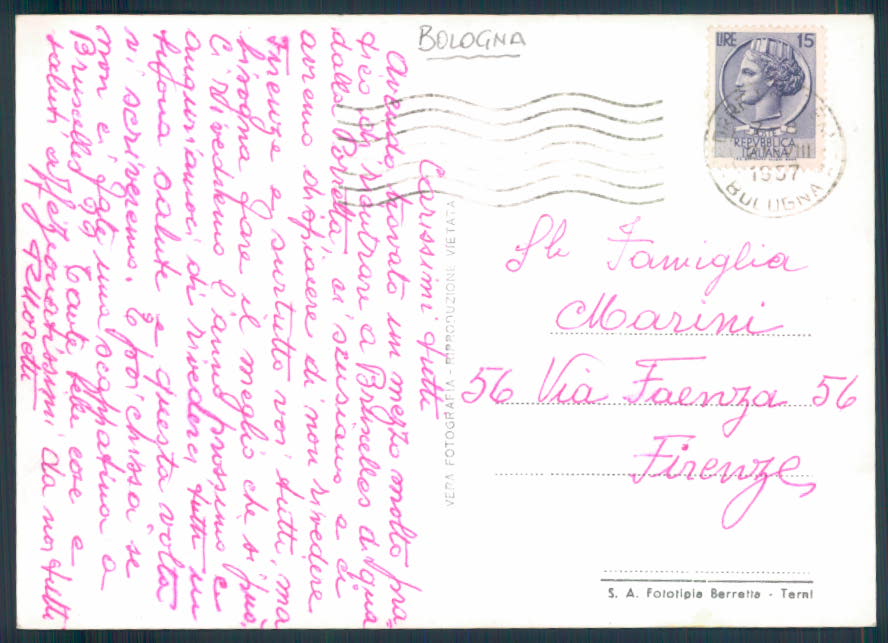 BOLOGNA
LIRE 15
REPVBBLICA
ITALIANA
1957
BOLOGNA
Carissimi tutti
Avendo trovato un mezzo molto pra-
tico di rientrare a Bruxelles di qua
dalla Porretta, ci scusiamo e di
avremo dispiacere di non rivedere
Firenze e surtutto voi tutti, ma
bisogna fare il meglio che si può.
Ci rivedremo l'anno prossimo e
auguriamoci di rivederci tutti in
buona salute e questa volta
vi scriveremo. E poi chissà se
non ci fate una scappatina a
Bruxelles Tante belle cose e
saluti affezionatissimi da noi tutti
Moretti
VERA FOTOGRAFIA - RIPRODUZIONE VIETATA
Famiglia
Marini
56 Via Faenza 56
Firenze
S. A. Fototipia Berretta - Terni